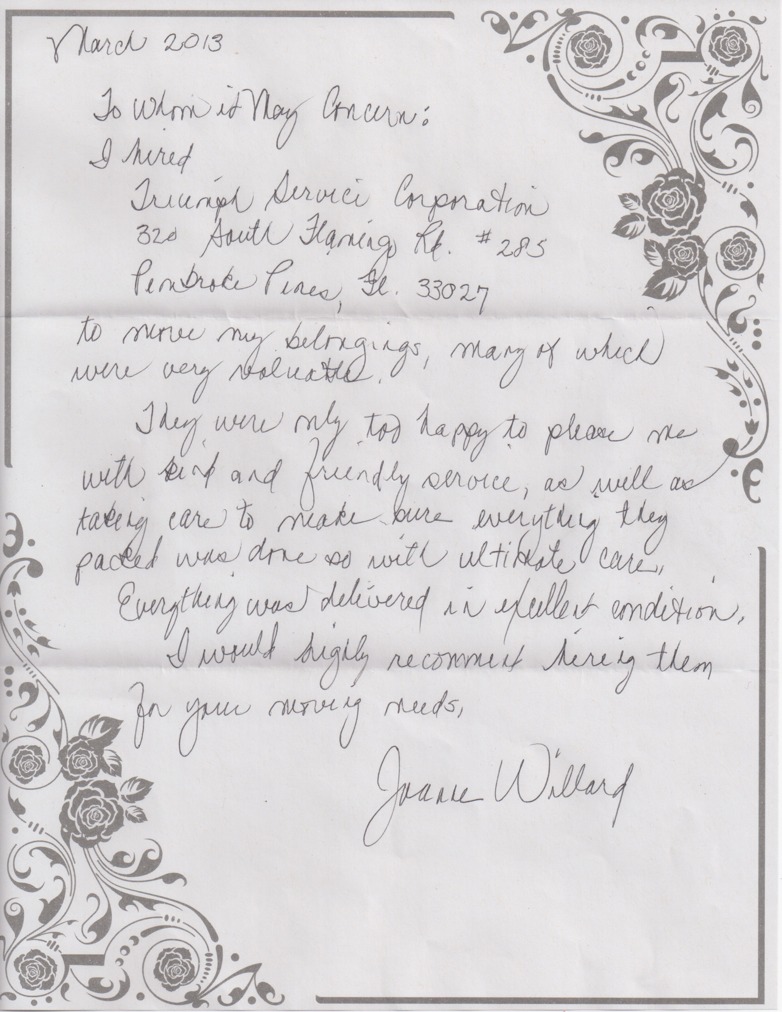 March 2013
To Whom it May Concern:
I hired
Triumph Service Corporation
320 South Flamingo Rd. #285
Pembroke Pines, Fl. 33027
to move my belongings, many of which
were very valuable.
They were only too happy to please me
with kind and friendly service, as well as
taking care to make sure everything they
packed was done so with ultimate care.
Everything was delivered in excellent condition.
I would highly recommend hiring them
for your moving needs,
Joanne Willard